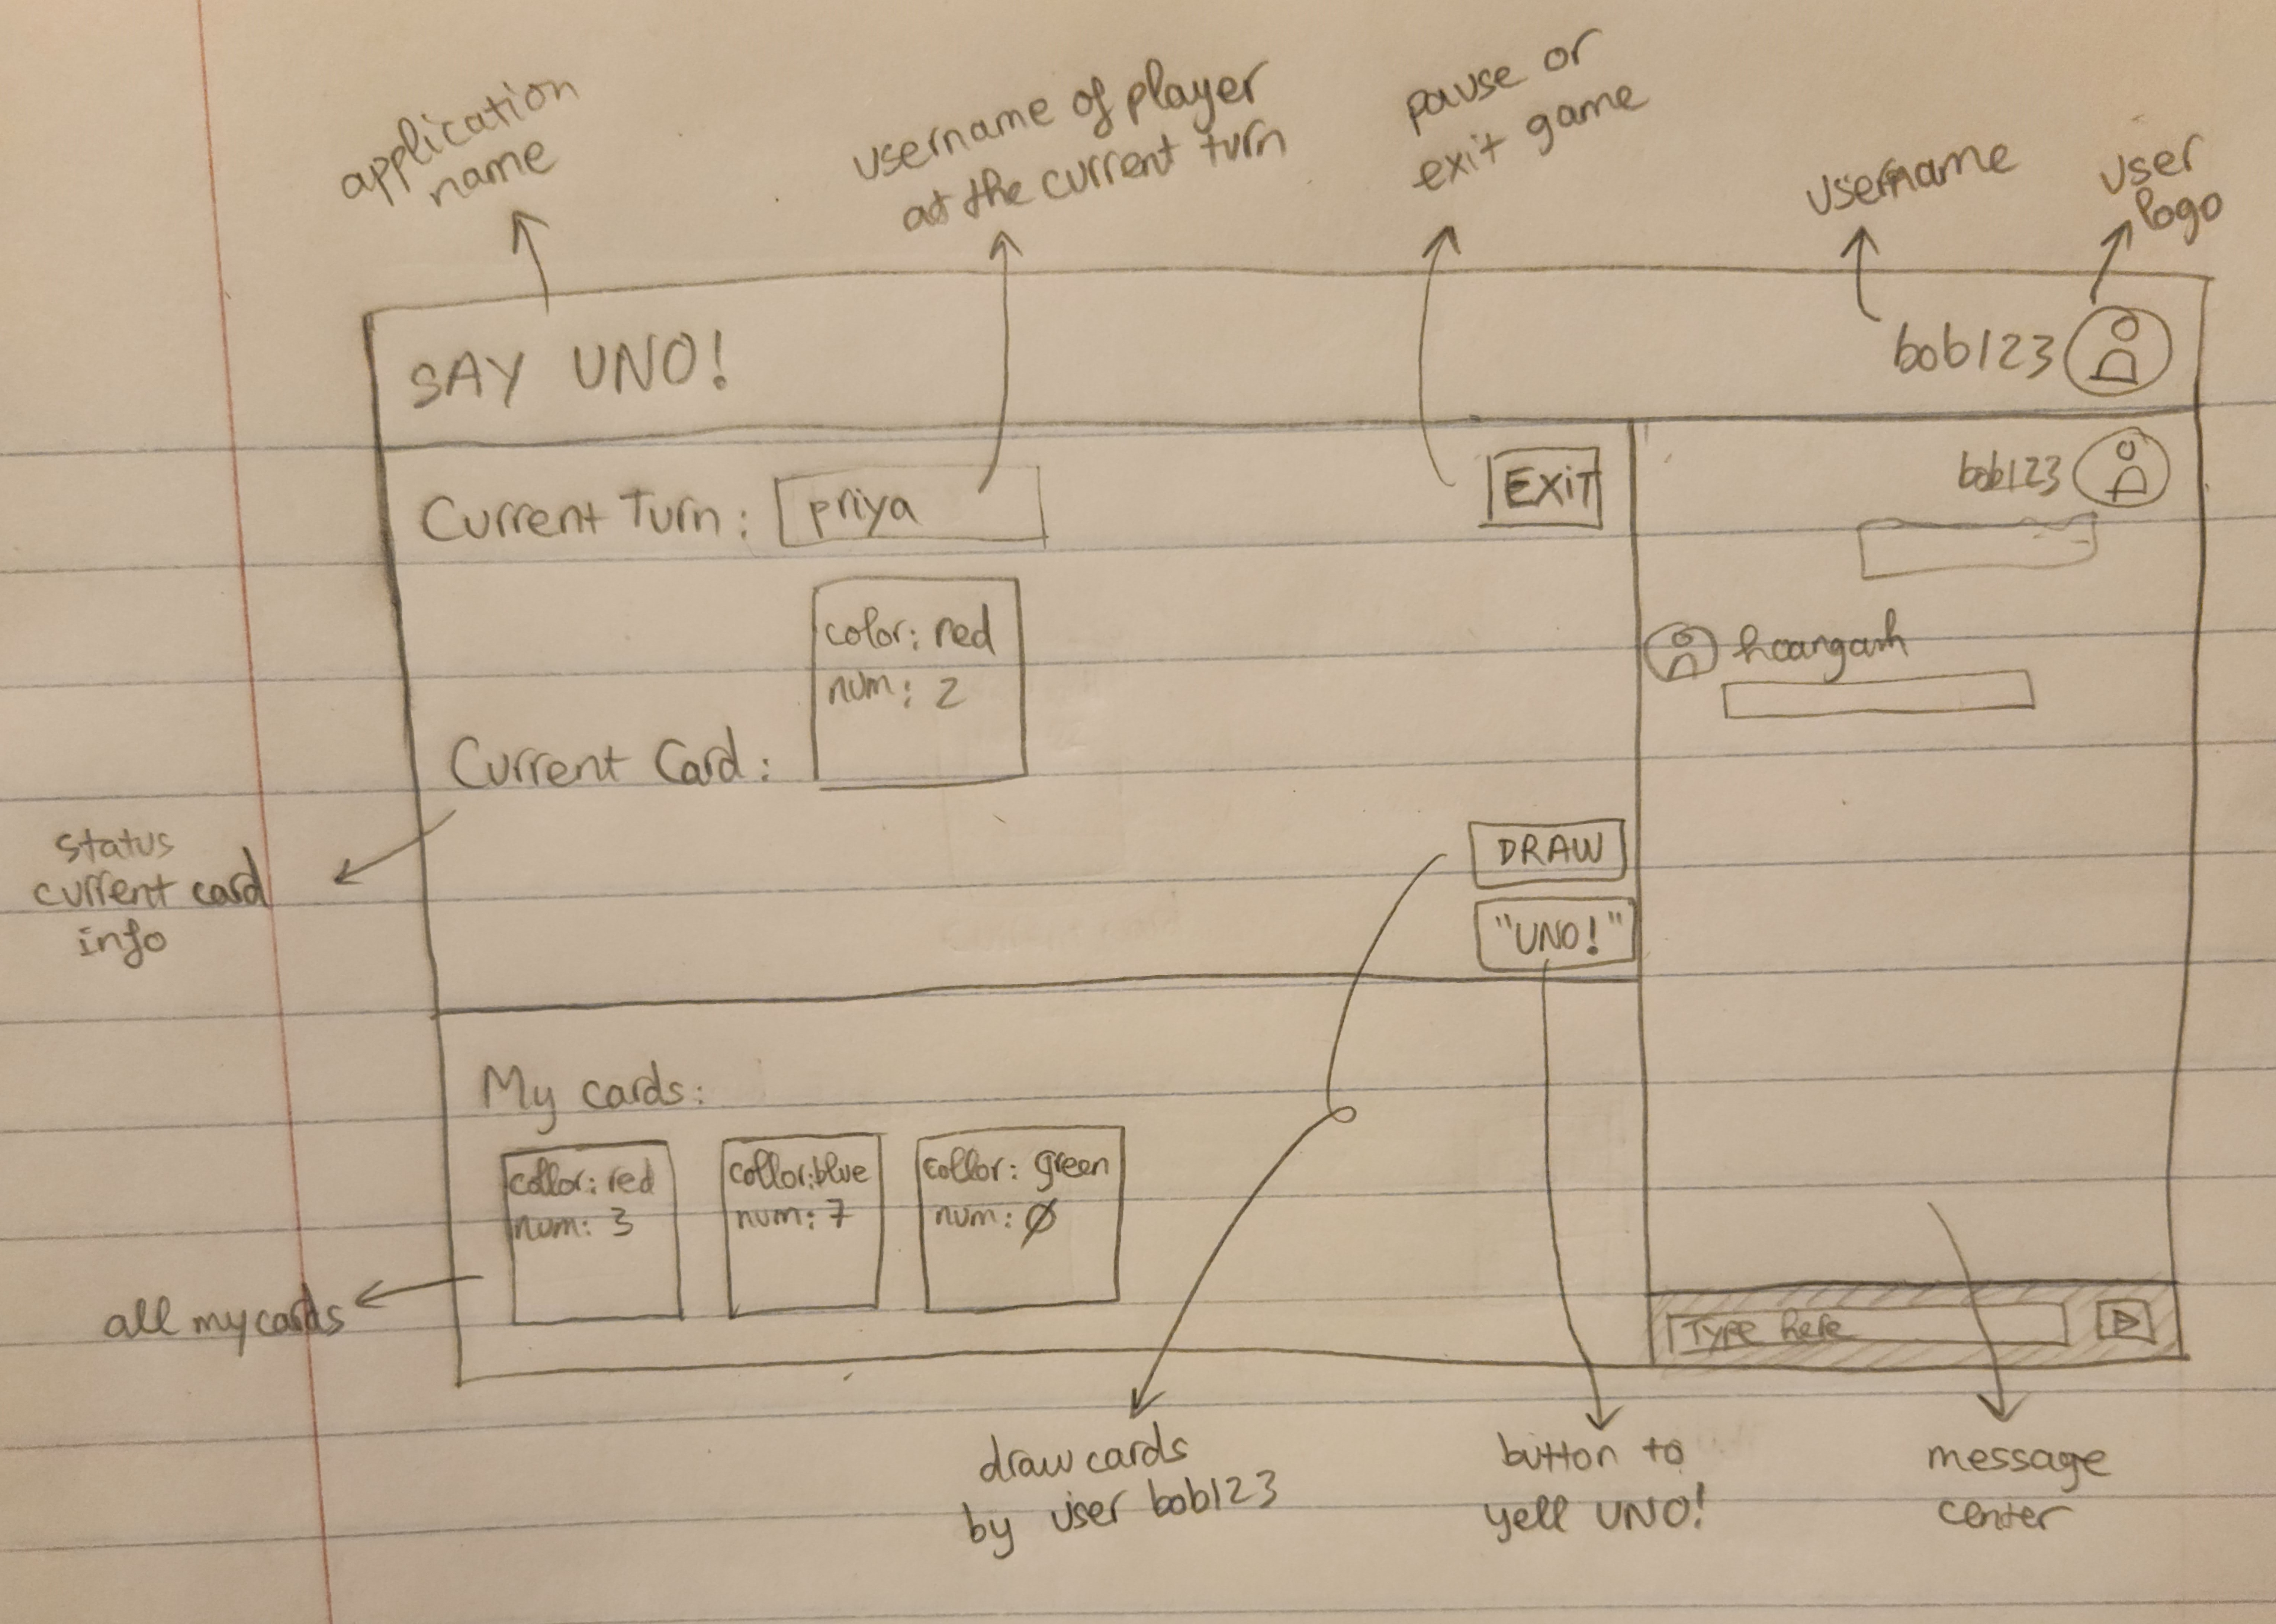 application
name
username of player
at the current turn
pause or
exit game
username
user
logo
SAY UNO!
bob123
Current Turn: priya
EXIT
bob123
color: red
num: 2
hoanganh
Current Card:
status
current card
info
DRAW
"UNO!"
My cards:
collor: red
num: 3
collor: blue
num: 7
collor: green
num: 0
all my cards
Type here
draw cards
by user bob123
button to
yell UNO!
message
center